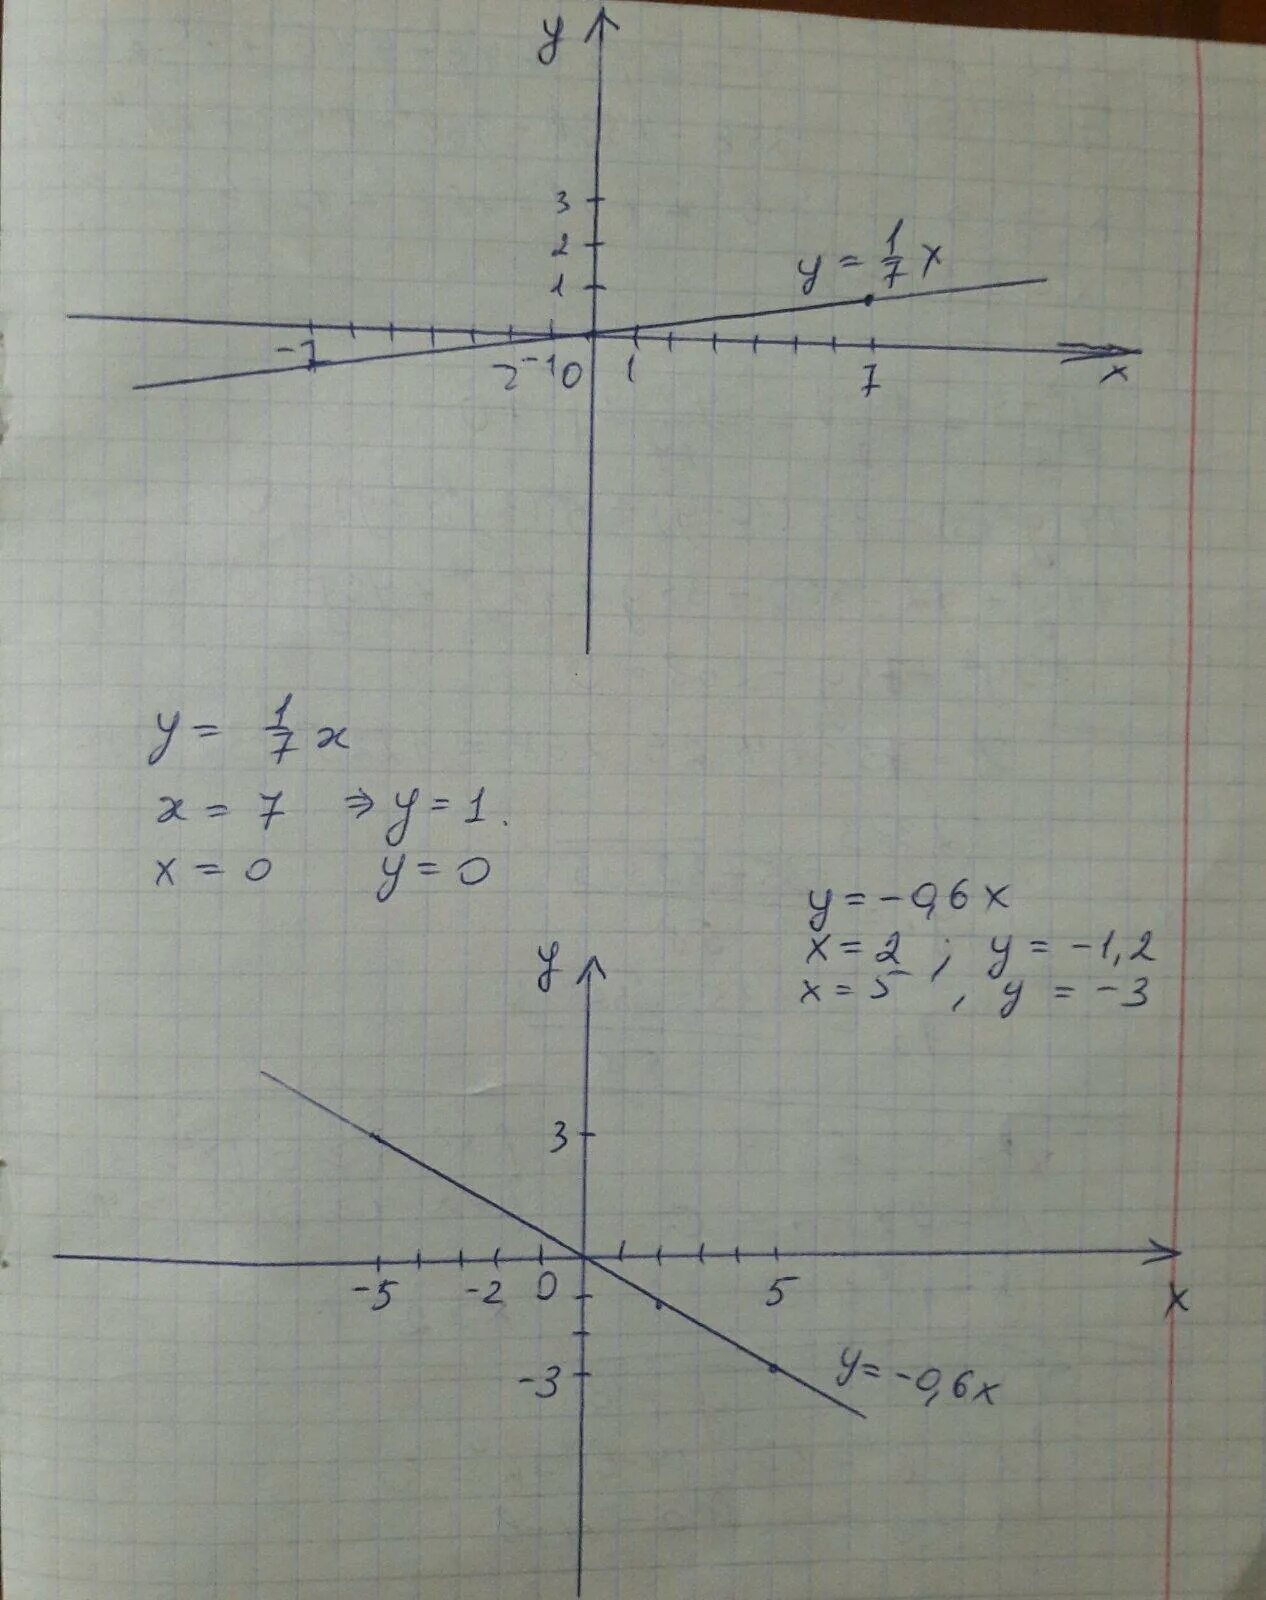 y
3
2
1
y = 1/7 x
-7 2 -1 0 1 7 x
y = 1/7 x
x = 7 ⇒ y = 1.
x = 0 y = 0
y = -0,6x
x = 2 ; y = -1,2
x = 5 , y = -3
y
3
-5 -2 0 5 x
-3
y = -0,6x